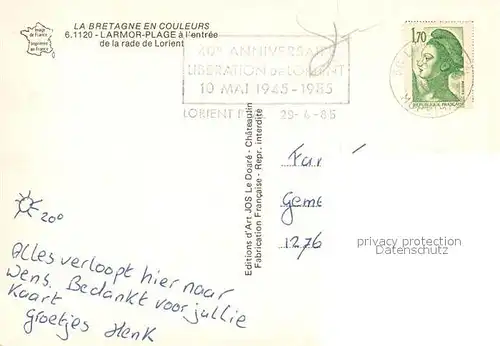 LA BRETAGNE EN COULEURS
6.1120 - LARMOR-PLAGE à l'entrée
de la rade de Lorient
Image
de France
Imprimée
en France
40e ANNIVERSAIRE
LIBERATION DE LORIENT
10 MAI 1945-1985
LORIENT 29-4-85
1,70
REPUBLIQUE FRANÇAISE
Editions d'Art JOS Le Doaré - Châteaulin
Fabrication Française - Repr. interdite
Fam
Geme
1276
privacy protection
VERDANDI COLLECTORS
20°
Alles verloopt hier naar
wens. Bedankt voor jullie
kaart
Groetjes Henk